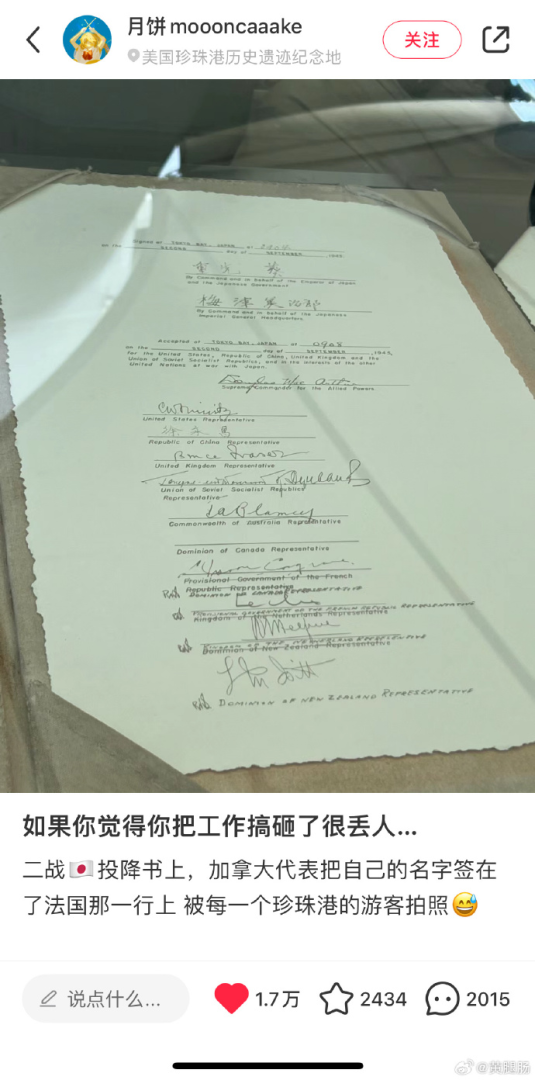 月饼moooncaaake
美国珍珠港历史遗迹纪念地
关注
Signed at TOKYO BAY, JAPAN at
on the SECOND day of SEPTEMBER, 1945.
By Command and in behalf of the Emperor of Japan
and the Japanese Government.
梅津美治郎
By Command and in behalf of the Japanese
Imperial General Headquarters.
Accepted at TOKYO BAY, JAPAN at 0908
on the SECOND day of SEPTEMBER, 1945,
for the United States, Republic of China, United Kingdom and the
Union of Soviet Socialist Republics, and in the interests of the other
United Nations at war with Japan.
Douglas MacArthur
Supreme Commander for the Allied Powers
CWNimitz
United States Representative
Republic of China Representative
Bruce Fraser
United Kingdom Representative
Union of Soviet Socialist Republics
Representative
Commonwealth of Australia Representative
Dominion of Canada Representative
Provisional Government of the French
Republic Representative
DOMINION OF CANADA REPRESENTATIVE
PROVISIONAL GOVERNMENT OF THE FRENCH REPUBLIC REPRESENTATIVE
Kingdom of the Netherlands Representative
KINGDOM OF THE NETHERLANDS REPRESENTATIVE
Dominion of New Zealand Representative
DOMINION OF NEW ZEALAND REPRESENTATIVE
如果你觉得你把工作搞砸了很丢人...
二战🇯🇵投降书上，加拿大代表把自己的名字签在
了法国那一行上 被每一个珍珠港的游客拍照😅
说点什么...
1.7万
2434
2015